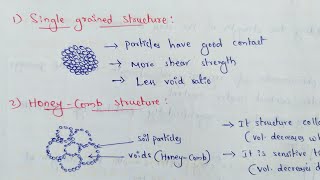 1) Single grained structure:
→ particles have good contact
→ More shear strength
→ Less void ratio
2) Honey-Comb structure:
soil particles
voids (Honey-Comb)
→ It structure colla
(vol. decreases wh
→ It is sensitive to
(vol. decreases d